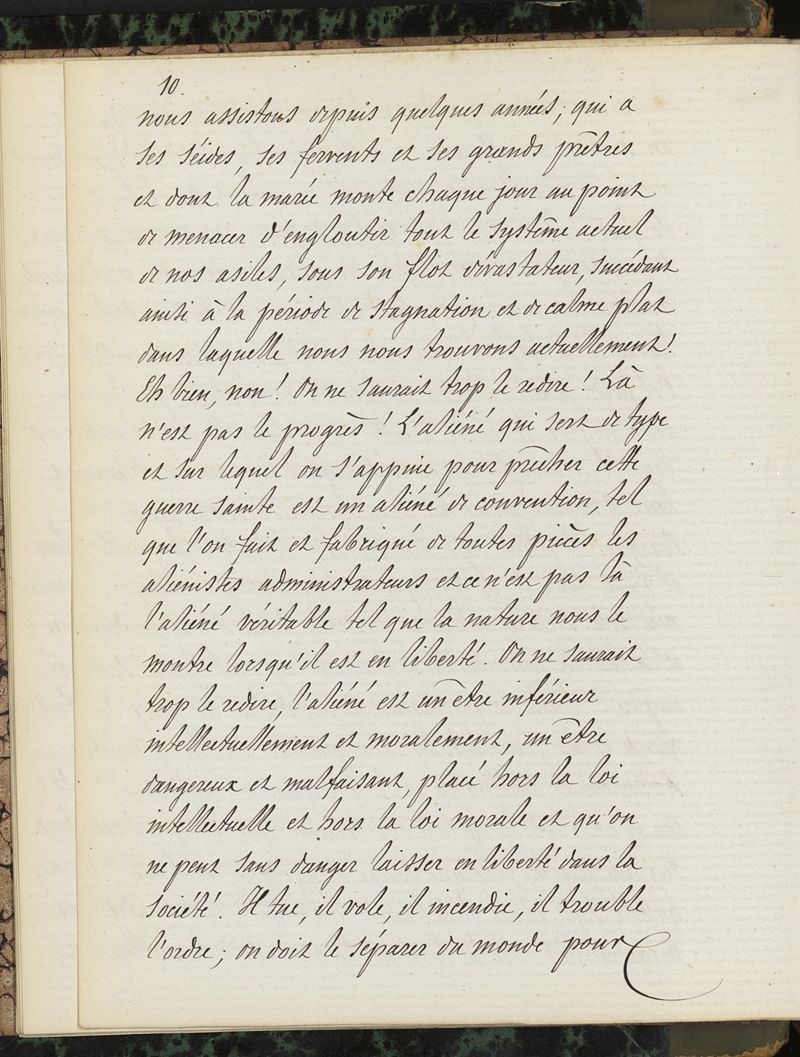 10.
nous assistons depuis quelques années, qui a
ses séides, ses fervents et ses grands prêtres
et dont la marée monte chaque jour au point
de menacer d'engloutir tout le système actuel
de nos asiles, sous son flot dévastateur, succédant
ainsi à la période de stagnation et de calme plat
dans laquelle nous nous trouvons actuellement!
Eh bien, non! On ne saurait trop le redire! Là
n'est pas le progrès! L'aliéné qui sert de type
et sur lequel on s'appuie pour prêcher cette
guerre sainte est un aliéné de convention, tel
que l'on fait et fabriqué de toutes pièces les
aliénistes administrateurs et ce n'est pas là
l'aliéné véritable tel que la nature nous le
montre lorsqu'il est en liberté. On ne saurait
trop le redire, l'aliéné est un être inférieur
intellectuellement et moralement, un être
dangereux et malfaisant, placé hors la loi
intellectuelle et hors la loi morale et qu'on
ne peut sans danger laisser en liberté dans la
société. Il tue, il vole, il incendie, il trouble
l'ordre; on doit le séparer du monde pour